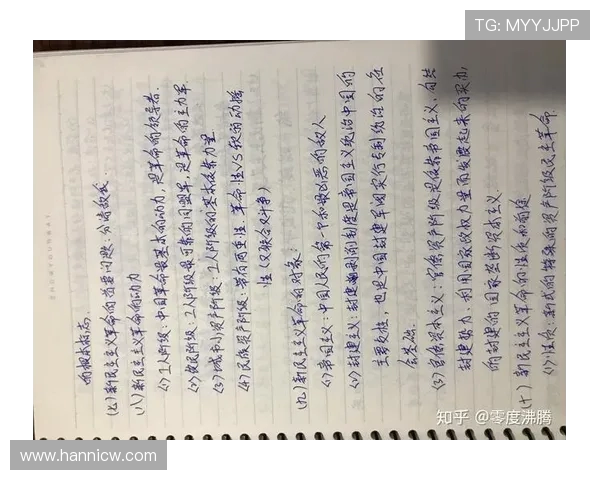 TG: MYYJJPP
的根本标志.
(七)新民主主义革命的首要问题: 分清敌我
(八)新民主主义革命的动力
<1>工人阶级: 中国革命最基本的动力, 是革命的领导者.
<2>农民阶级: 工人阶级最可靠的同盟军, 是革命的主力军.
<3>城市小资产阶级: 工人阶级的基本依靠力量
<4>民族资产阶级: 带有两重性. 革命性VS软弱动摇
性(又联合又斗争)
(九)新民主主义革命的对象:
<1>帝国主义: 中国人民的第一个和最凶恶的敌人
<2>封建主义: 封建剥削制度是帝国主义统治中国的
主要支柱, 也是中国封建军阀实行专制统治的社
会基础.
<3>官僚资本主义: 官僚资产阶级是依靠帝国主义、勾结
封建势力、利用国家政权力量而发展起来的买办
的封建的国家垄断资本主义.
(十)新民主主义革命的性质和前途
<1>性质: 新式的特殊的资产阶级民主革命
知乎 @零度沸腾
www.hannicw.com